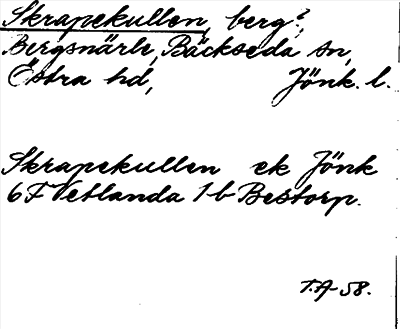 Skrapekullen, berg?,
Bergsnärle, Bäckseda sn,
Östra hd, Jönk. l.
Skrapekullen ek Jönk
6F Vetlanda 1-b Bestorp.
T.A-58.